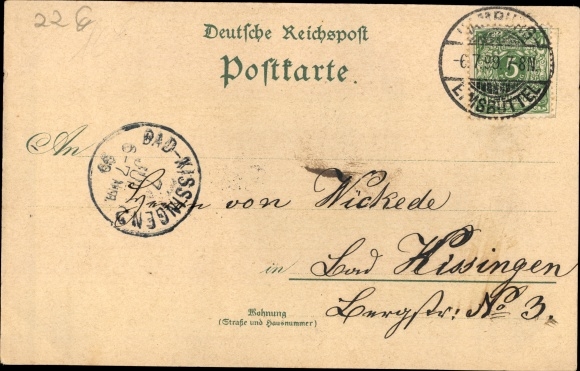 22 G
Deutsche Reichspost
Postkarte.
HAMBURG
-6.7.99. 8N.
EIMSBÜTTEL
5
An
BAD-KISSINGEN 2
Herrn von Wickede
in Bad Kissingen
Wohnung
(Straße und Hausnummer)
Bergstr: No 3.